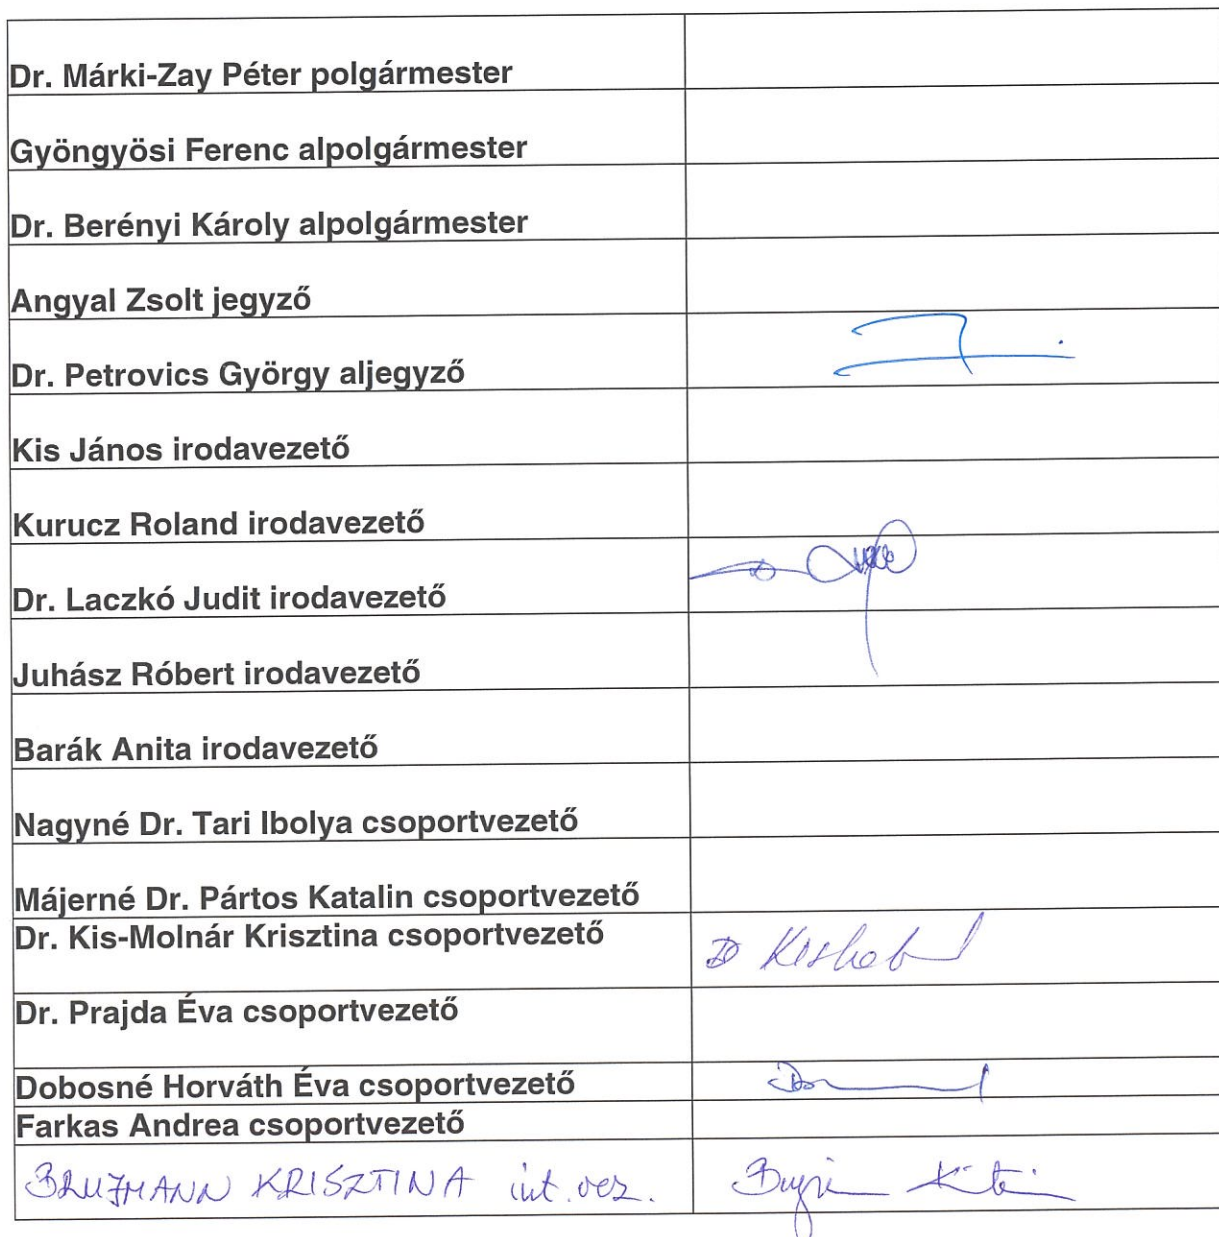 Dr. Márki-Zay Péter polgármester
Gyöngyösi Ferenc alpolgármester
Dr. Berényi Károly alpolgármester
Angyal Zsolt jegyző
Dr. Petrovics György aljegyző
Kis János irodavezető
Kurucz Roland irodavezető
Dr. Laczkó Judit irodavezető
Juhász Róbert irodavezető
Barák Anita irodavezető
Nagyné Dr. Tari Ibolya csoportvezető
Májerné Dr. Pártos Katalin csoportvezető
Dr. Kis-Molnár Krisztina csoportvezető
Dr. Prajda Éva csoportvezető
Dobosné Horváth Éva csoportvezető
Farkas Andrea csoportvezető
KRISZTINA int. vez.